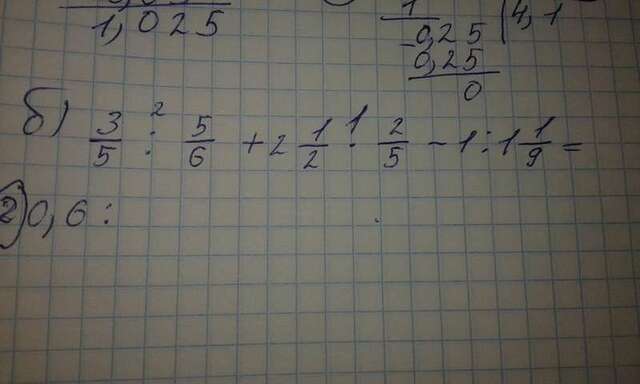 1,025
1
-0,25 | 4,1
0,25
0
б) 3/5 :² 5/6 + 2 1/2 ·¹ 2/5 - 1 : 1 1/9 =
2) 0,6 :